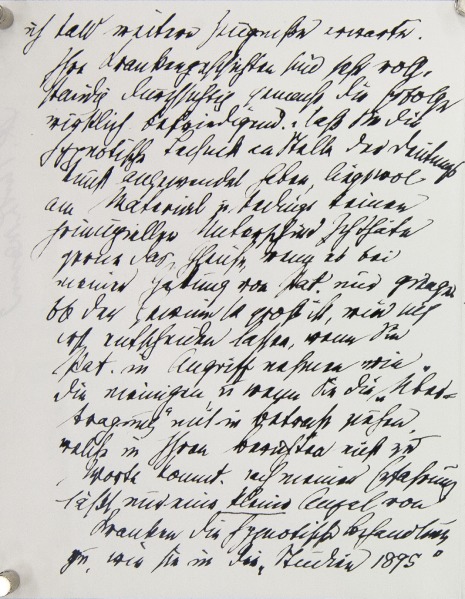 ich bald weitere Zeugnisse erwarte.
Ihre Krankengeschichten sind sehr voll-
ständig durchsichtig gemacht die Erfolge
wirklich befriedigend. Daß Sie die
hypnotische Technik an Stelle der Deutungs
kunst angewendet haben, liegt wol
am Material u. bedingt keinen
prinzipiellen Unterschied. Ich thäte
gerne das Gleiche, wenn es bei
meiner von Pat. nur ginge.
Ob der so groß ist, wird sich
erst entscheiden lassen, wenn Sie
Pat. in Angriff nehmen wie
die meinigen u wenn Sie die „Über-
tragung“ mit in Betracht ziehen,
welche in Ihren Berichten nicht zu
Worte kommt. Nach meiner Erfahrung
läßt nur eine kleine Anzal von
Kranken die hypnotische Behandlung
zu, wie sie in den „Studien 1895“